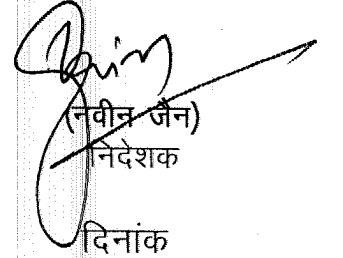 (नवीन जैन)
निदेशक
दिनांक